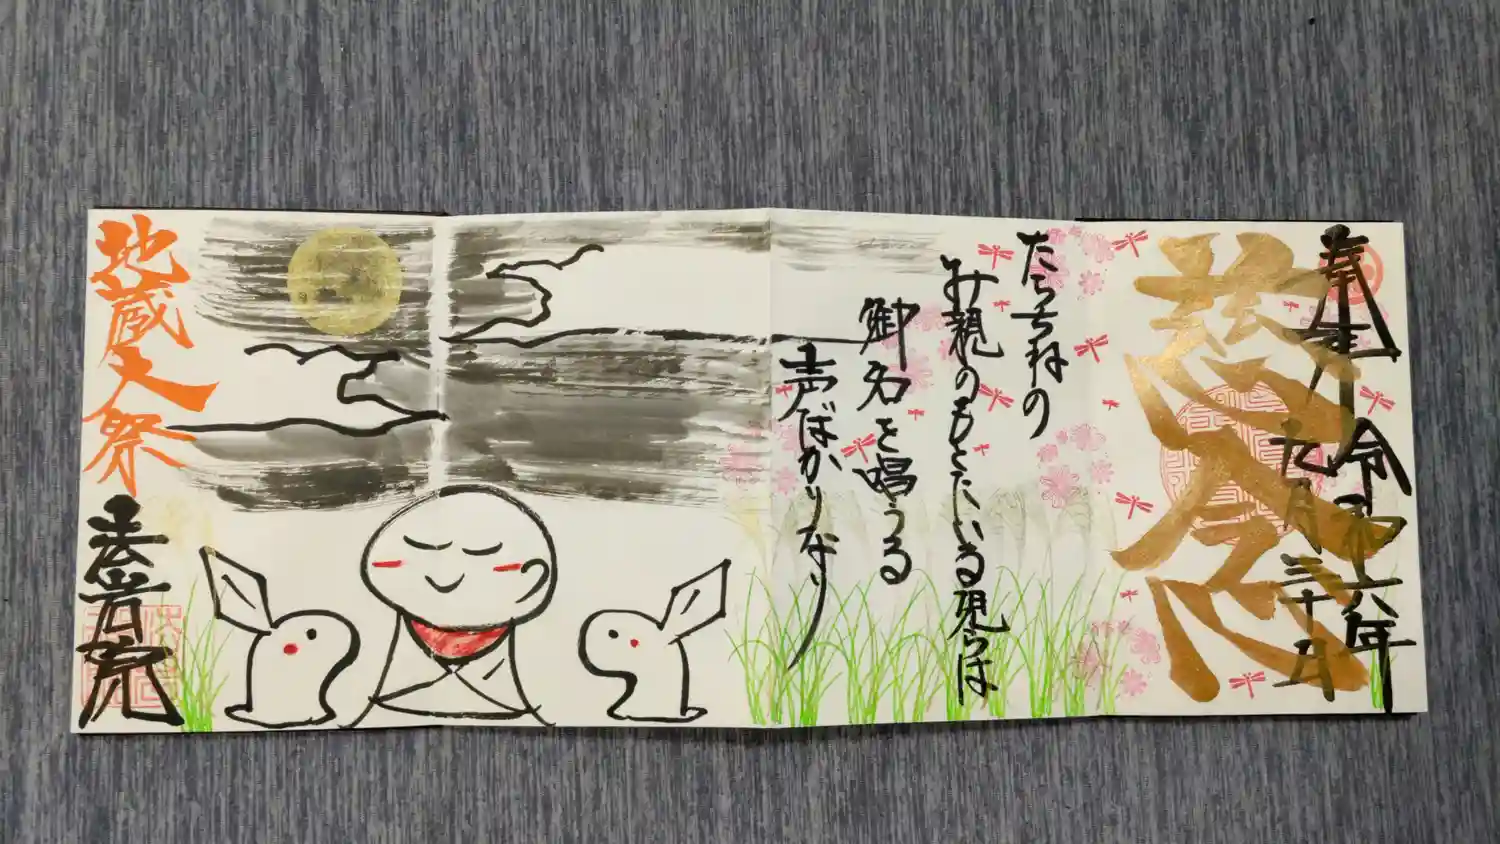 奉拝
令和六年
九月三十日
慈念
たらちねの
み親のもとにいる児らは
御名を唱うる
声ばかりなり
地蔵大祭